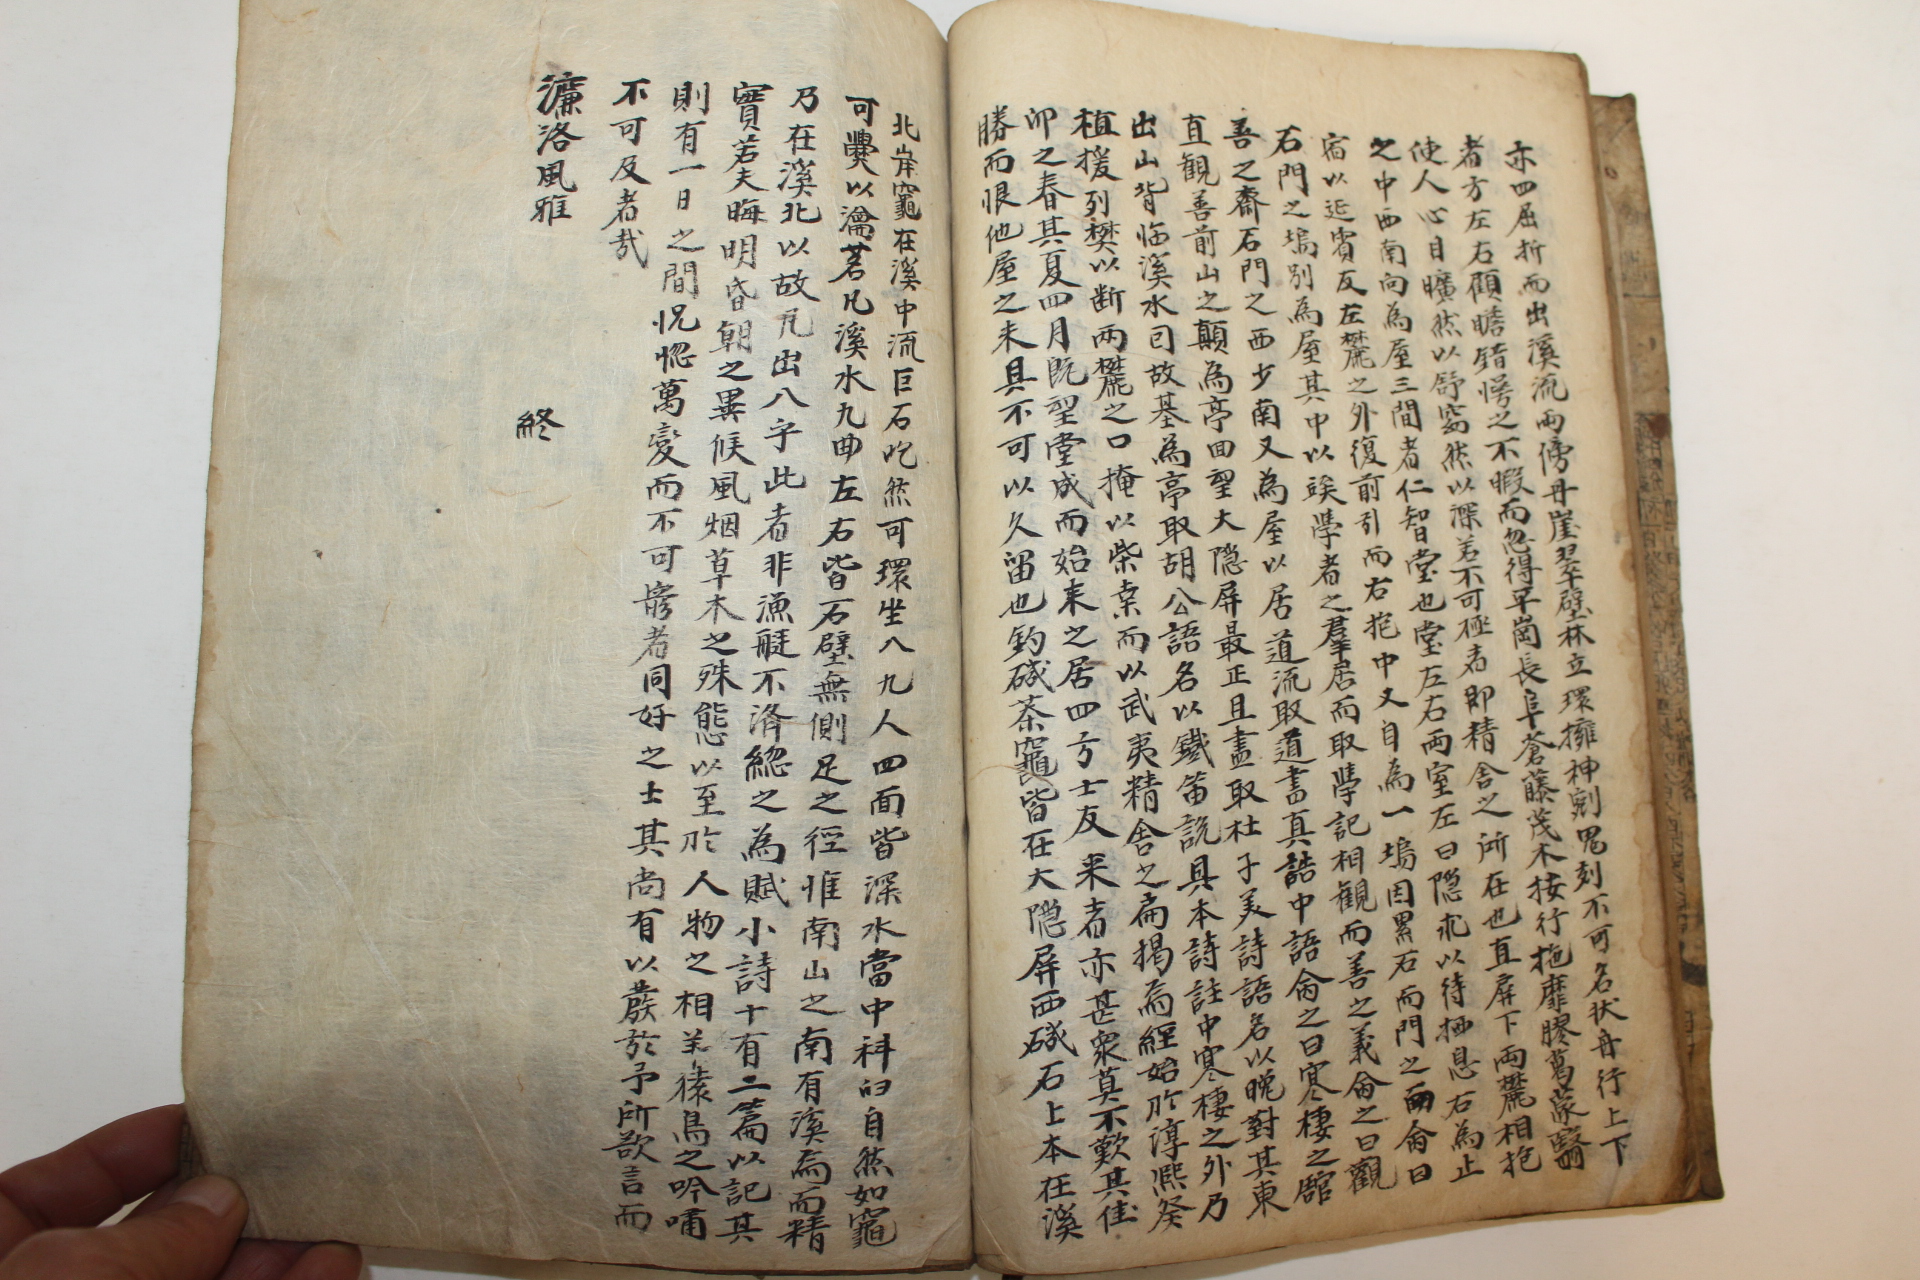 亦四屈折而出溪流兩傍丹崖翠壁林立環擁神剜鬼刻不可名狀舟行上下
者方左右顧瞻錯愕之不暇而忽得平崗長阜蒼藤茂木按行拖靡膠葛蒙翳
使人心目曠然以舒窈然以深若不可極者即精舍之所在也直屏下兩麓相抱
之中西南向為屋三間者仁智堂也堂左右兩室左曰隱求以待栖息右為止
宿以延賓友左麓之外復前引而右抱中又自為一塢因累石而門之而侖曰
石門之塢別為屋其中以竢學者之羣居而取學記相觀而善之義侖之曰觀
善之齋石門之西少南又為屋以居道流取道書真誥中語侖之曰寒棲之舘
直觀善前山之顛為亭回望大隱屏最正且盡取杜子美詩語名以晚對其東
出山背臨溪水囙故基為亭取胡公語名以鐵笛說具本詩註中寒棲之外乃
植援列樊以断兩麓之口掩以柴枽而以武夷精舍之扁揭焉經始於淳熙癸
卯之春其夏四月既望堂成而始来之居四方士友来者亦甚衆莫不歎其佳
勝而恨他屋之未具不可以久留也釣磯茶竈皆在大隱屏西磯石上本在溪
北岸竈在溪中流巨石屹然可環坐八九人四面皆深水當中科臼自然如竈
可爨以瀹茗凡溪水九曲左右皆石壁無側足之徑惟南山之南有溪焉而精
乃在溪北以故凡出入乎此者非漁艇不濟緫之為賦小詩十有二篇以記其
實若夫晦明昏朝之異候風烟草木之殊態以至於人物之相羊猿鳥之吟嘯
則有一日之間怳惚萬變而不可窮者同好之士其尚有以發於予所欲言而
不可及者哉
濂洛風雅
終